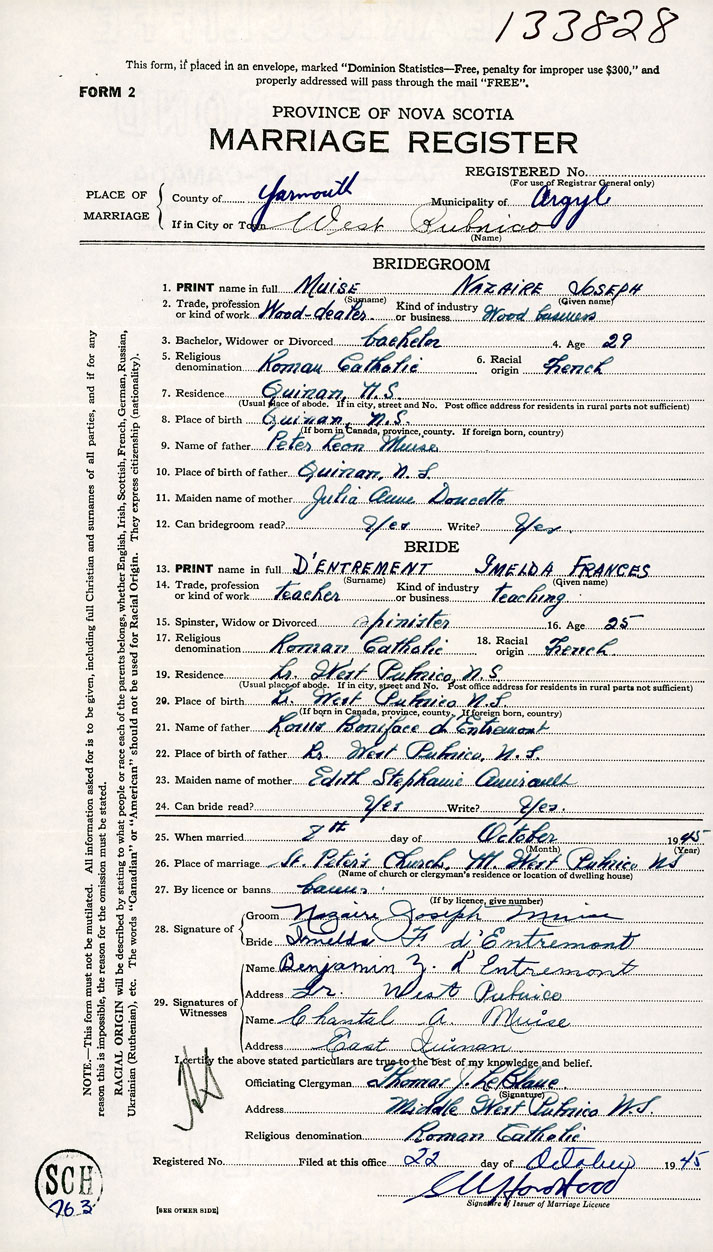 133828
This form, if placed in an envelope, marked "Dominion Statistics—Free, penalty for improper use $300," and
properly addressed will pass through the mail "FREE".
FORM 2
PROVINCE OF NOVA SCOTIA
MARRIAGE REGISTER
REGISTERED No.
(For use of Registrar General only)
PLACE OF MARRIAGE
County of Yarmouth Municipality of Argyle
If in City or Town West Pubnico
(Name)
BRIDEGROOM
1. PRINT name in full MUISE NAZAIRE JOSEPH
(Surname) (Given name)
2. Trade, profession or kind of work Wood-dealer Kind of industry or business Wood business
3. Bachelor, Widower or Divorced bachelor 4. Age 29
5. Religious denomination Roman Catholic 6. Racial origin French
7. Residence Quinan, N.S.
(Usual place of abode. If in city, street and No. Post office address for residents in rural parts not sufficient)
8. Place of birth Quinan, N.S.
(If born in Canada, province, county. If foreign born, country)
9. Name of father Peter Leon Muise
10. Place of birth of father Quinan, N.S.
11. Maiden name of mother Julia Anne Doucette
12. Can bridegroom read? Yes Write? Yes.
BRIDE
13. PRINT name in full D'ENTREMENT IMELDA FRANCES
(Surname) (Given name)
14. Trade, profession or kind of work teacher Kind of industry or business teaching
15. Spinster, Widow or Divorced spinster 16. Age 25
17. Religious denomination Roman Catholic 18. Racial origin French
19. Residence Lr. West Pubnico, N.S.
(Usual place of abode. If in city, street and No. Post office address for residents in rural parts not sufficient)
20. Place of birth Lr. West Pubnico N.S.
(If born in Canada, province, county. If foreign born, country)
21. Name of father Louis Boniface d'Entremont
22. Place of birth of father Lr. West Pubnico, N.S.
23. Maiden name of mother Edith Stephanie Amirault
24. Can bride read? Yes Write? Yes.
25. When married 8th day of October 1945
(Month) (Year)
26. Place of marriage St. Peter's Church, M. West Pubnico NS
(Name of church or clergyman's residence or location of dwelling house)
27. By licence or banns banns
(If by licence, give number)
28. Signature of
Groom Nazaire Joseph Muise
Bride Imelda F d'Entremont
29. Signatures of Witnesses
Name Benjamin Z. d'Entremont
Address Lr. West Pubnico
Name Chantal A. Muise
Address East Quinan
I certify the above stated particulars are true to the best of my knowledge and belief.
Officiating Clergyman Thomas J. LeBlanc
(Signature)
Address Middle West Pubnico N.S.
Religious denomination Roman Catholic
Registered No. Filed at this office 22 day of October 1945
Signature of Issuer of Marriage Licence
[SEE OTHER SIDE]
SCH
763
NOTE.—This form must not be mutilated. All information asked for is to be given, including full Christian and surnames of all parties, and if for any
reason this is impossible, the reason for the omission must be stated.
RACIAL ORIGIN will be described by stating to what people or race each of the parents belongs, whether English, Irish, Scottish, French, German, Russian,
Ukrainian (Ruthenian), etc. The words "Canadian" or "American" should not be used for Racial Origin. They express citizenship (nationality).